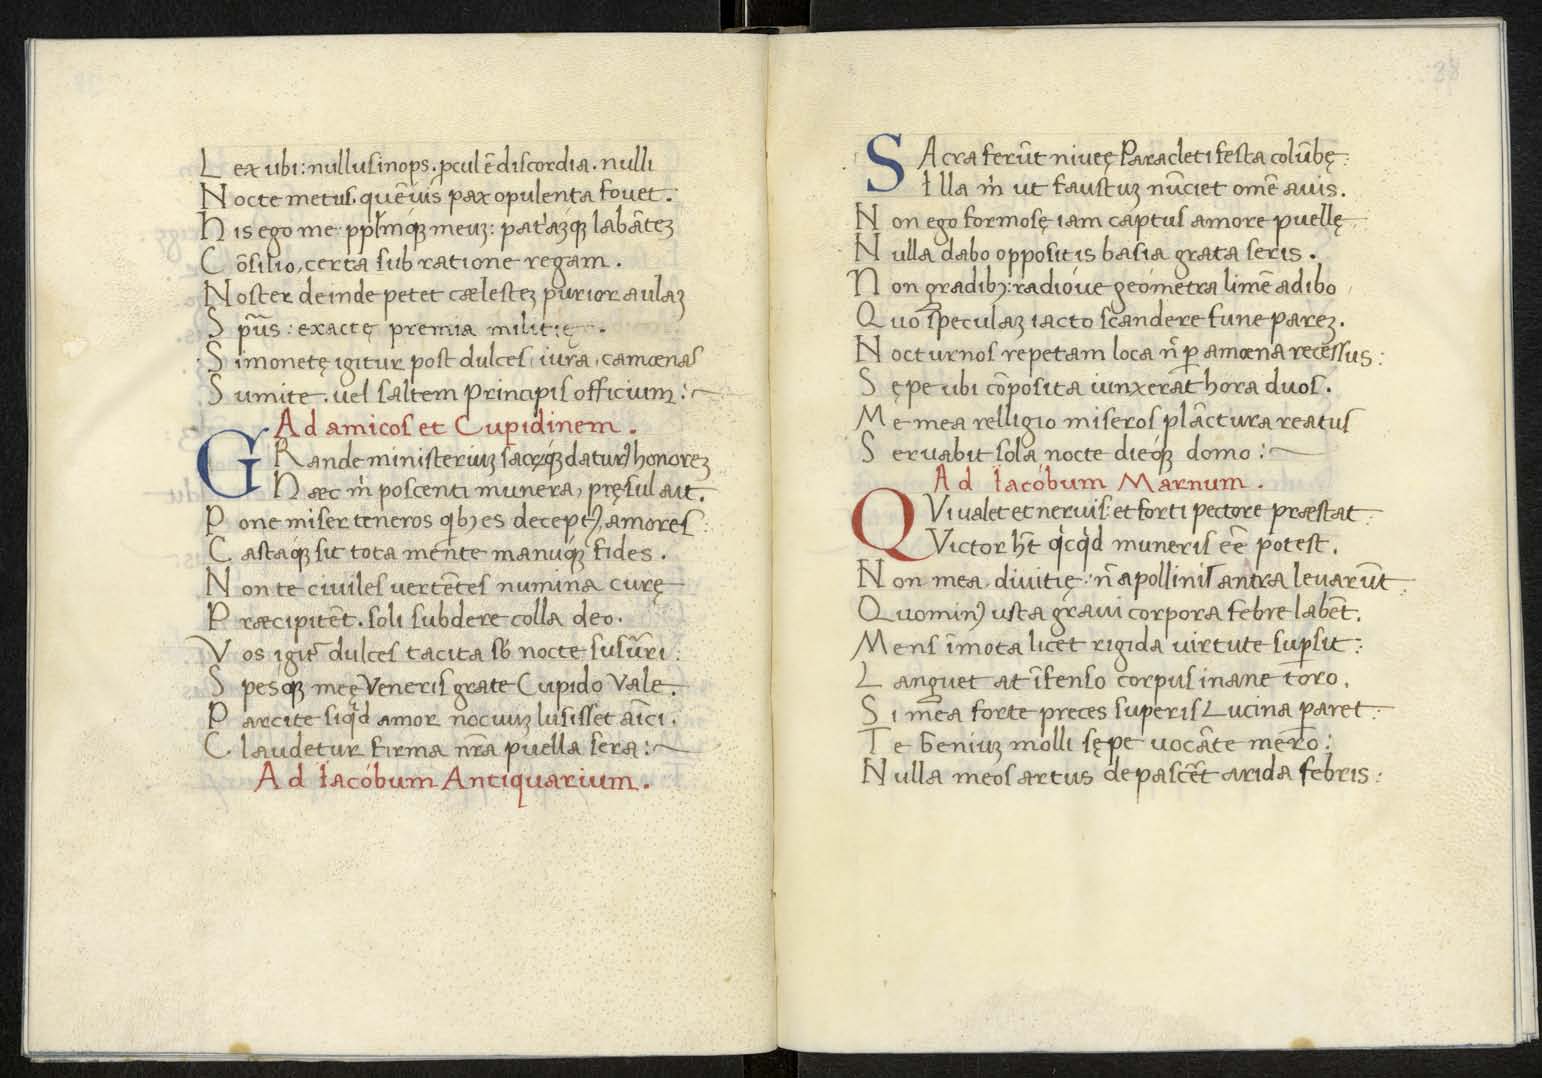 Lex ubi: nullus inops. ꝓcul ē discordia. nulli
Nocte metus. quēuis pax opulenta fouet.
His ego me pp̄lmqꝫ meuꝫ: pat'aꝫqꝫ labāteꝫ
Cōsilio, certa sub ratione regam.
Noster deinde petet cælesteꝫ purior aulaꝫ
Sp̄us: exactę premia militię.
Simonetę igitur post dulces iura camœnas
Sumite. uel saltem Principis officium:
Ad amicos et Cupidinem.
GRande ministeriuꝫ sacrqꝫ datur honoreꝫ
Hæc m̊ poscenti munera, pręsul ait.
Pone miser teneros qbꝫ es deceptꝰ amores:
Castaqꝫ sit tota mente manuqꝫ fides.
Non te ciuiles vertētes numina curę
Præcipitēt. soli subdere colla deo.
Vos igit̄ dulces tacita sb nocte susūri:
Spesqꝫ meę Veneris grate Cupido Vale.
Parcite siqd amor nocuuꝫ lusisset aīci.
Claudetur firma nr̄a puella sera:
Ad Iacóbum Antiquarium.
38
SAcra ferūt niueę Paracleti festa colūbę:
Illa m̊ ut faustuꝫ nūciet omē auis.
Non ego formosę iam captus amore puellę
Nulla dabo oppositis basia grata seris.
Non gradibꝫ: radióue geómetra limē adibo
Quo speculaꝫ iacto scandere fune pareꝫ.
Nocturnos repetam loca n̄ ꝑ amœna recessus:
Sępe ubi cōposita iunxerat hora duos.
Me mea relligio miseros plāctura reatus
Seruabit sola nocte dieqꝫ domo:
Ad Iacóbum Marnum.
QVi ualet et neruis: et forti pectore præstat
Victor hēt qcqd muneris eē potest.
Non mea diuitię. n̄ apollinis antra leuarūt
Quominꝰ usta graui corpora febre labēt.
Mens īmota licet rigida uirtute suꝑsit:
Languet at īfenso corpus inane toro.
Si mea forte preces superis Lucina paret
Te Geniuꝫ molli sępe uocāte mero:
Nulla meos artus depascēt arida febris: